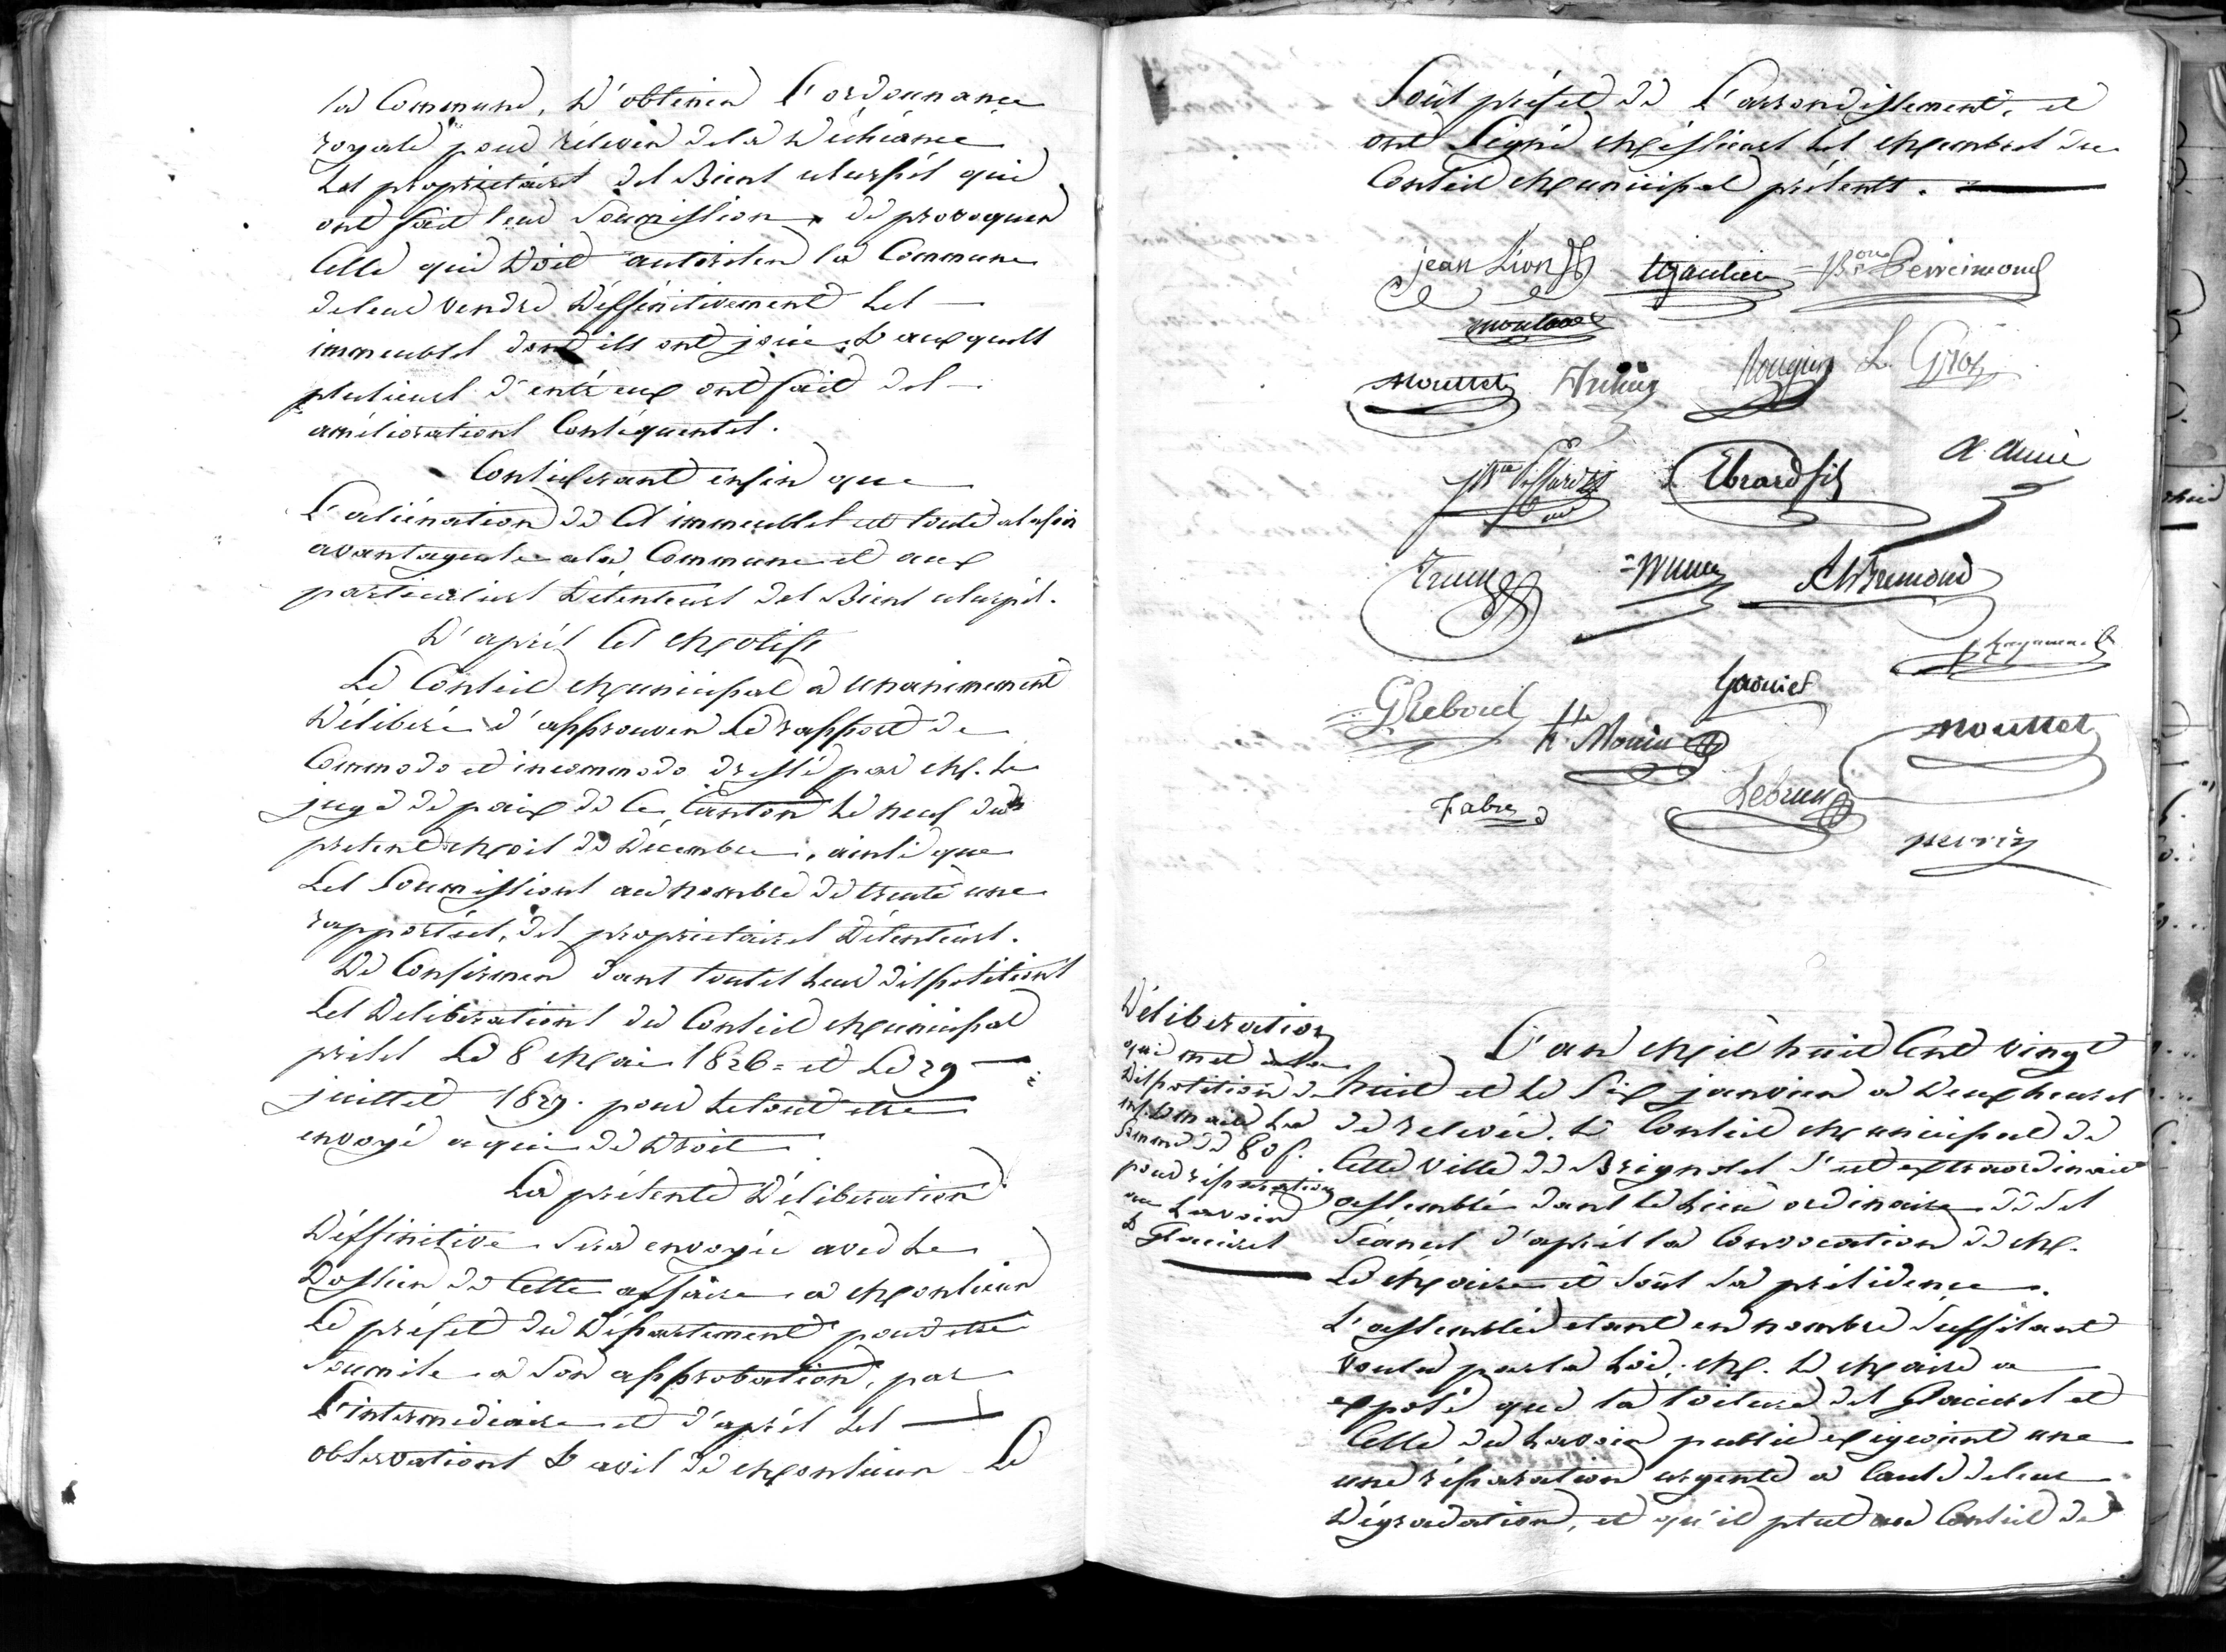 la Commune, d'obtenir l'ordonnance
royale pour rélever de la déchéance
les propriétaires des Biens usurpés qui
ont fait leur soumission & de provoquer
Celle qui doit autoriser la Commune
de leur vendre déffinitivement les
immeubles dont ils ont joui & auxquels
plusieurs d'entr'eux ont fait des
améliorations Conséquentes.
Considerant enfin que
L'aliénation de ces immeubles est toute à la fois
avantageuse a la Commune et aux
particuliers Détenteurs des Biens usurpés.
D'après ces Motifs
Le Conseil Municipal a unanimement
Déliberé d'approuver le rapport de
Commodo et incommodo dressé par M. le
juge de paix de ce Canton le neuf du
présent Mois de Décembre, ainsi que
Les soumissions au nombre de trente une
rapportées, des propriétaires Détenteurs.
De Confirmer dans toutes leurs dispositions
Les Deliberations du Conseil Municipal
prises Le 8 Mai 1826 = et Le 29
juillet 1827. pour le tout etre
envoyé a qui de Droit
La présente Déliberation
Déffinitive sera envoyée avec le
Dossier de Cette affaire a Monsieur
Le préfet du Département pour etre
soumise a son approbation, par
L'intermediaire et d'après les
observations & avis de Monsieur Le
Sous préfet de l'arrondissement, et
ont Signé Messieurs les Membres du
Conseil Municipal présents.
jean Lion
Perreimond
mouttet
L. Gros
Ebrard fils
A. Amic
Fremond
G Reboul
Garnier
Mouttet
Lebrun
Fabre
perrin
Déliberation
qui met à la
Disposition de
M. Le Maire La
Somme de 80 f.
pour réparation
au Lavoir
& Glacieres
L'an Mil huit Cent vingt
huit et le Six janvier a Deux heures
de relevée. Le Conseil Municipal de
Cette ville de Brignoles s'est extraordinairt
assemblé dans le lieu ordinaire de ses
Séances d'après la Convocation de M.
Le Maire et sous sa présidence.
L'assemblée etant en nombre suffisant
voulu par la Loi, M. Le Maire a
exposé que la toiture des Glacieres et
Celle du Lavoir public exigeoient une
une réparation urgente a Cause de leur
Dégradation, et qu'il plut au Conseil de